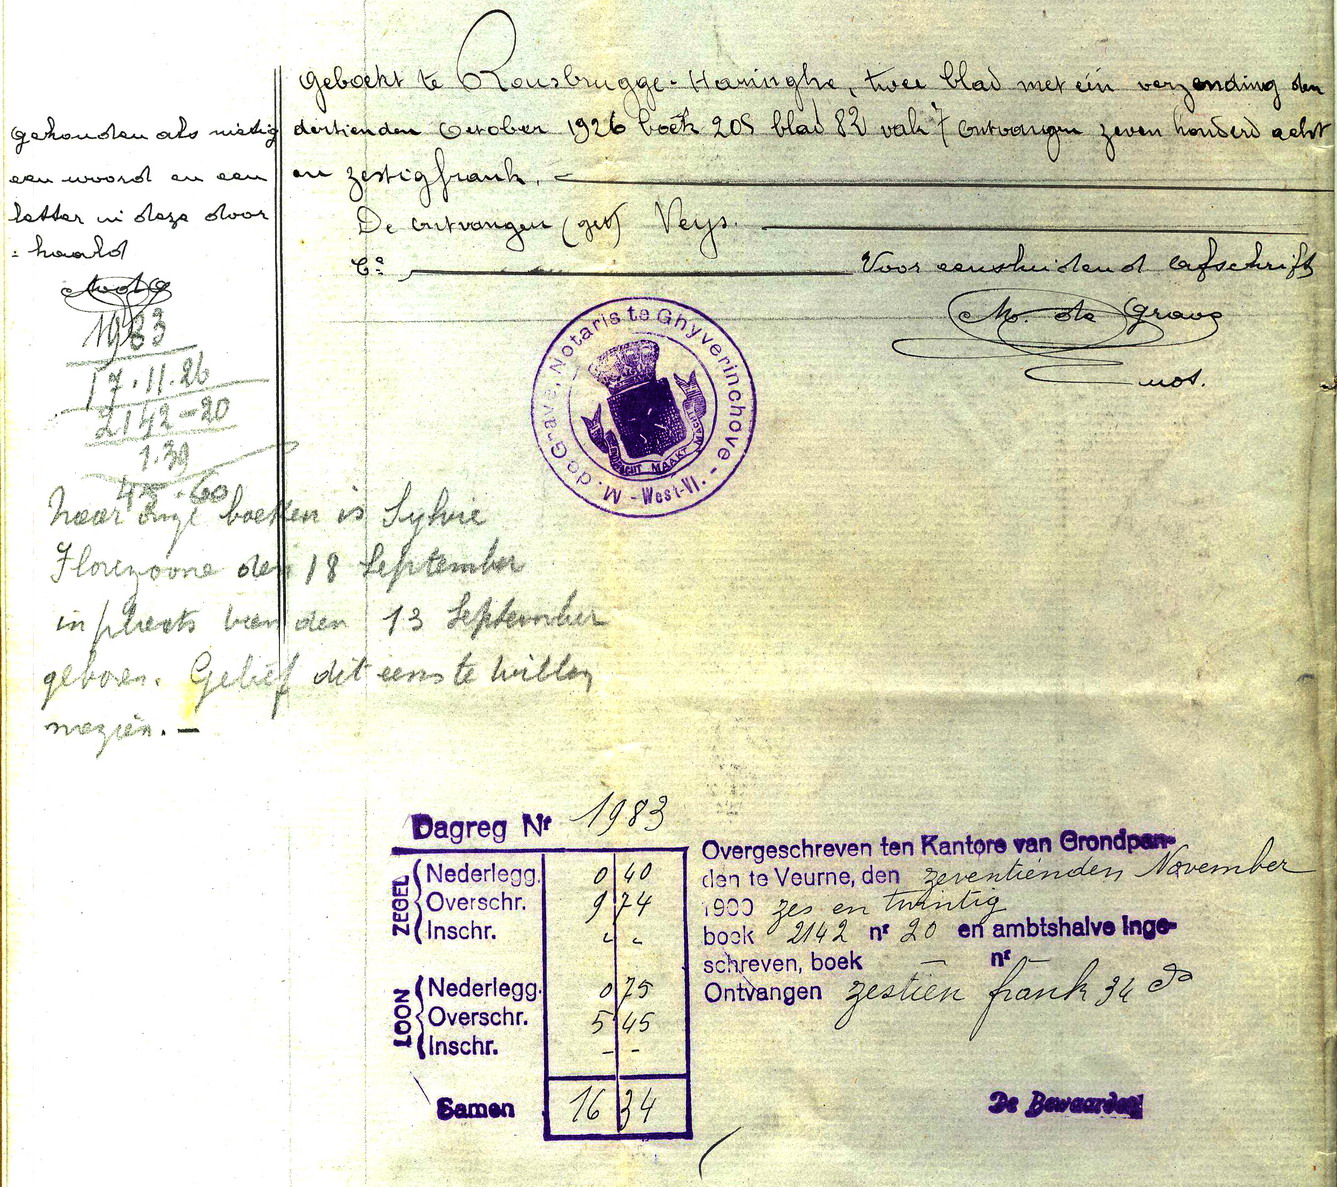 Geboekt te Rousbrugge-Haringhe, twee blad met één verzending den
dertienden October 1926 boek 205 blad 82 vak 7 ontvangen zeven honderd acht
en zestig frank.
De ontvanger (get) Veys.
Voor eensluidend afschrift
M. de Grave
not.
gehouden als nietig
een woord en een
letter in deze door
=haald
1983
17.11.26
2142-20
1.39
45.60
Naar onze boeken is Sylvie
Florizoone den 18 September
in plaats van den 13 September
geboren. Gelief dit eens te willen
nazien. —
M. de Grave, Notaris te Ghyverinchove - West-Vl. -
EENDRACHT MAAKT MACHT
Dagreg Nr 1983
ZEGEL
Nederlegg. 0 40
Overschr. 9 74
Inschr. " "
LOON
Nederlegg. 0 75
Overschr. 5 45
Inschr. - -
Samen 16 34
Overgeschreven ten Kantore van Grondpan-
den te Veurne, den zeventienden November
1900 zes en twintig
boek 2142 nr 20 en ambtshalve Inge-
schreven, boek — nr
Ontvangen zestien frank 34
De Bewaarder